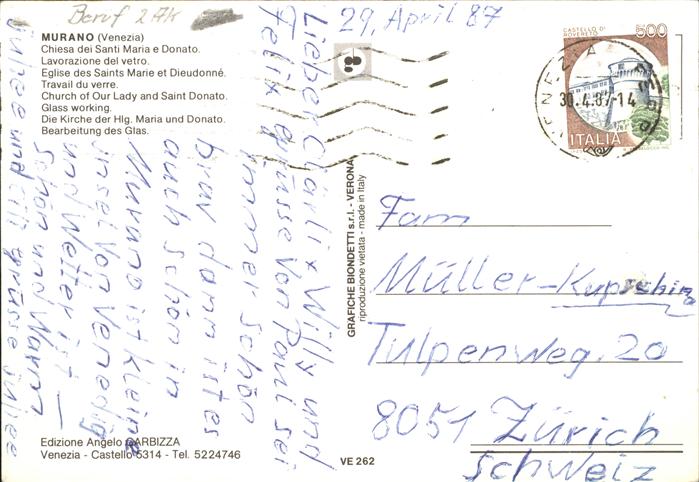 Beruf 2 Ak
MURANO (Venezia)
Chiesa dei Santi Maria e Donato.
Lavorazione del vetro.
Eglise des Saints Marie et Dieudonné.
Travail du verre.
Church of Our Lady and Saint Donato.
Glass working.
Die Kirche der Hlg. Maria und Donato.
Bearbeitung des Glas.
29. April 87
Lieber Charli x Willy und
Felix grüsse von Pani sei
immer schön
brav dann ist es
auch schön in
Murano ist kleine
insel von Venedig
und Wetter ist
Schön und Warm
und ich grüsse
Edizione Angelo GARBIZZA
Venezia - Castello 5314 - Tel. 5224746
GRAFICHE BIONDETTI s.r.l. - VERONA
riproduzione vietata - made in Italy
VE 262
CASTELLO DI
ROVERETO
500
ITALIA
VENEZIA
30.4.87-14
Fam
Müller-Kupschina
Tulpenweg. 20
8051 Zürich
Schweiz